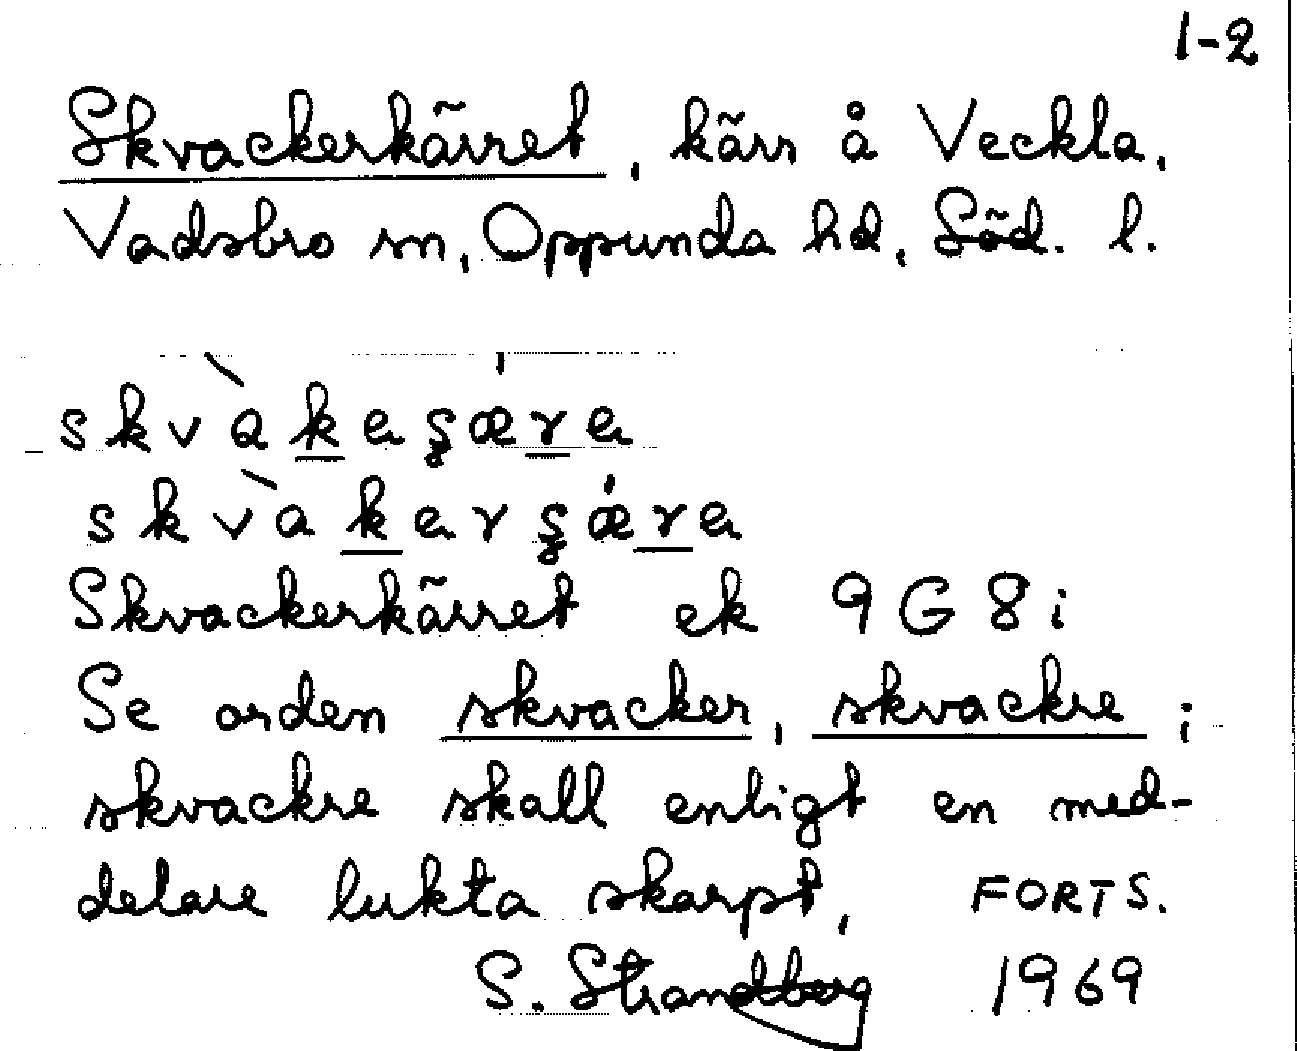 1-2
Skvackerkärret, kärr å Veckla,
Vadsbro sn, Oppunda hd, Söd. l.
skvàkeʂære
skvàkerʂǽre
Skvackerkärret ek 9G8i
Se orden skvacker, skvackre;
skvackre skall enligt en med-
delare lukta skarpt, FORTS.
S. Strandberg 1969